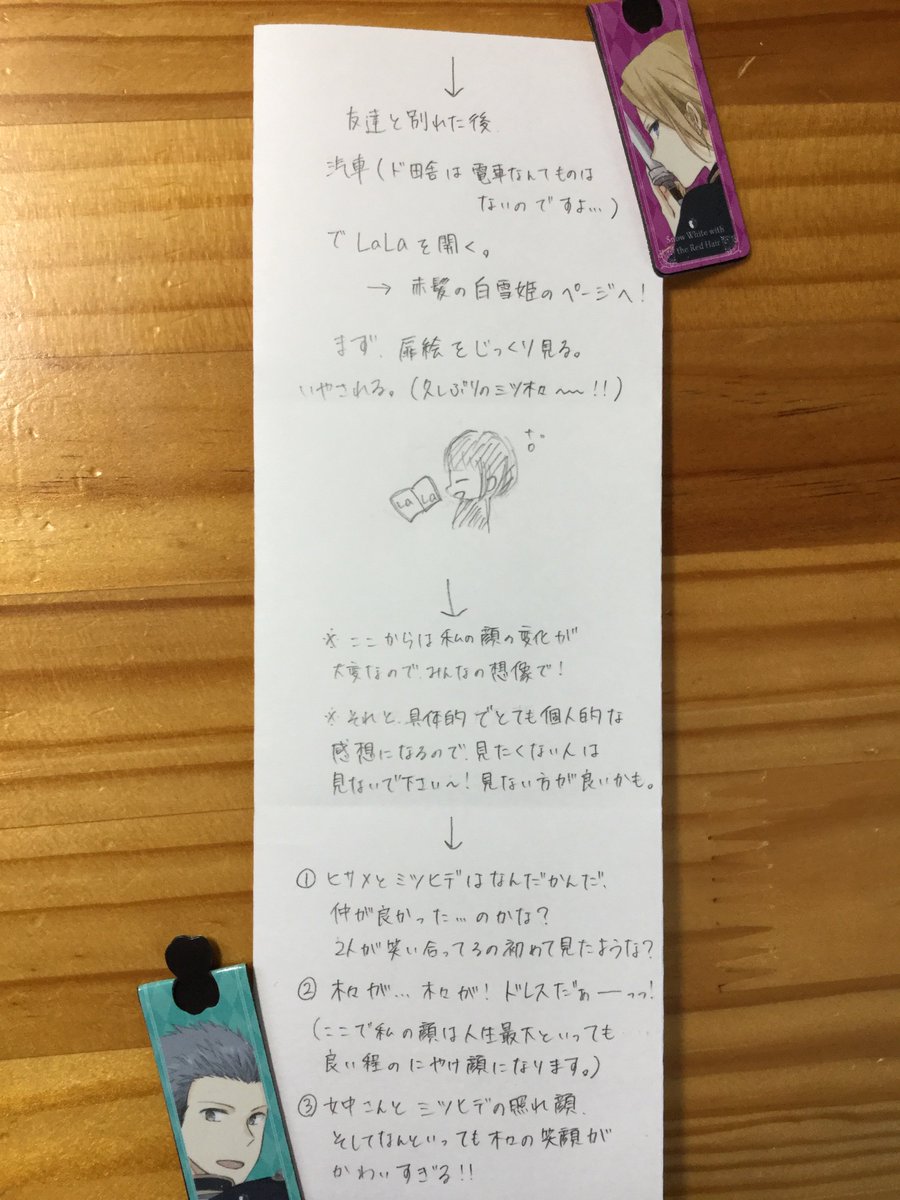 ↓
友達と別れた後、
汽車(ド田舎は電車なんてものは
ないのですよ…)
でLaLaを開く。
→ 赤髪の白雪姫のページへ!
まず、扉絵をじっくり見る。
いやされる。(久しぶりのミツ木々〜〜!!)
LaLa
↓
※ ここからは私の顔の変化が
大変なので、みんなの想像で!
※ それと、具体的でとても個人的な
感想になるので、見たくない人は
見ないで下さい〜!見ない方が良いかも。
↓
① ヒサメとミツヒデはなんだかんだ、
仲が良かった…のかな?
2人が笑い合ってるの初めて見たような?
② 木々が…木々が!ドレスだぁーっっ!
(ここで私の顔は人生最大といっても
良い程のにやけ顔になります。)
③ 女中さんとミツヒデの照れ顔、
そしてなんといっても木々の笑顔が
かわいすぎる!!
Snow White with
the Red Hair